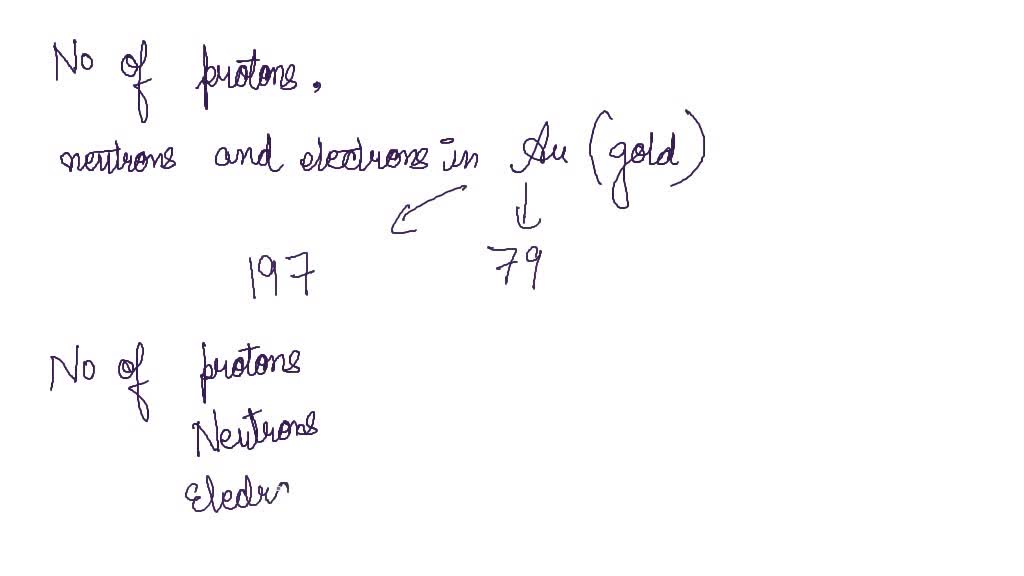 No of protons,
neutrons and electrons in Au (gold)
197 79
No of protons
Neutrons
Electr